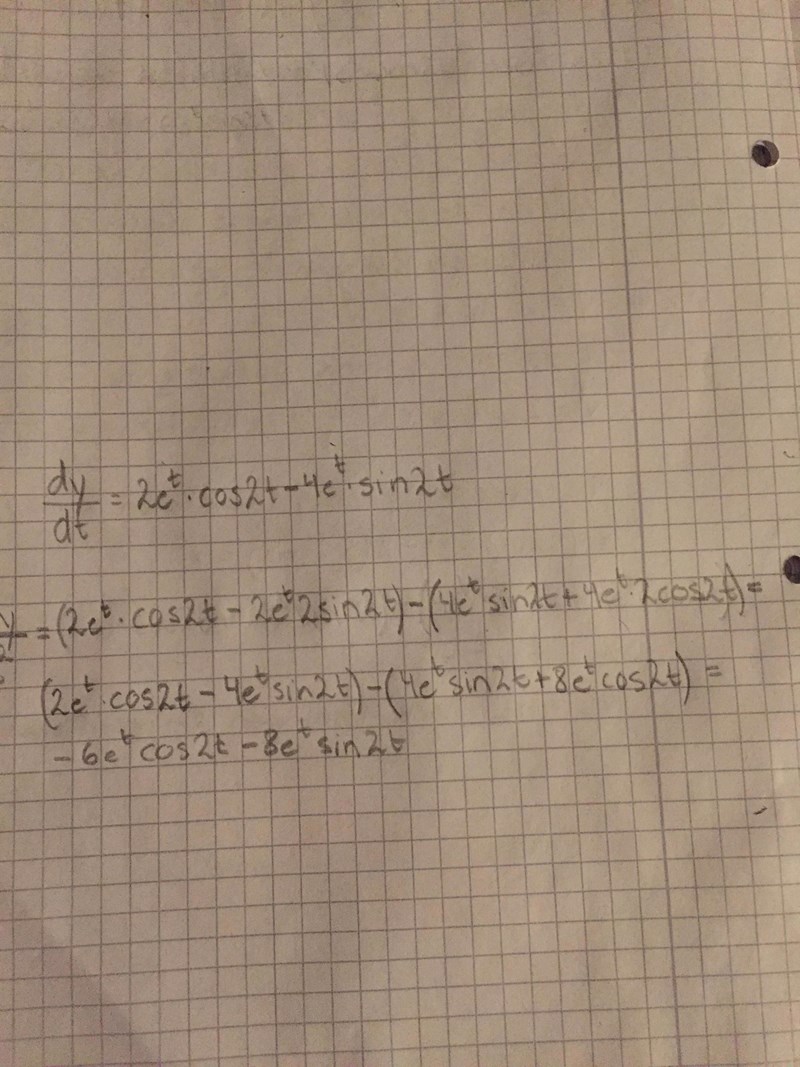 dy/dt = 2e^t · cos2t - 4e^t · sin2t
= (2e^t · cos2t - 2e^t 2sin2t) - (4e^t sin2t + 4e^t · 2cos2t) =
(2e^t · cos2t - 4e^t sin2t) - (4e^t sin2t + 8e^t cos2t) =
- 6e^t cos2t - 8e^t sin2t